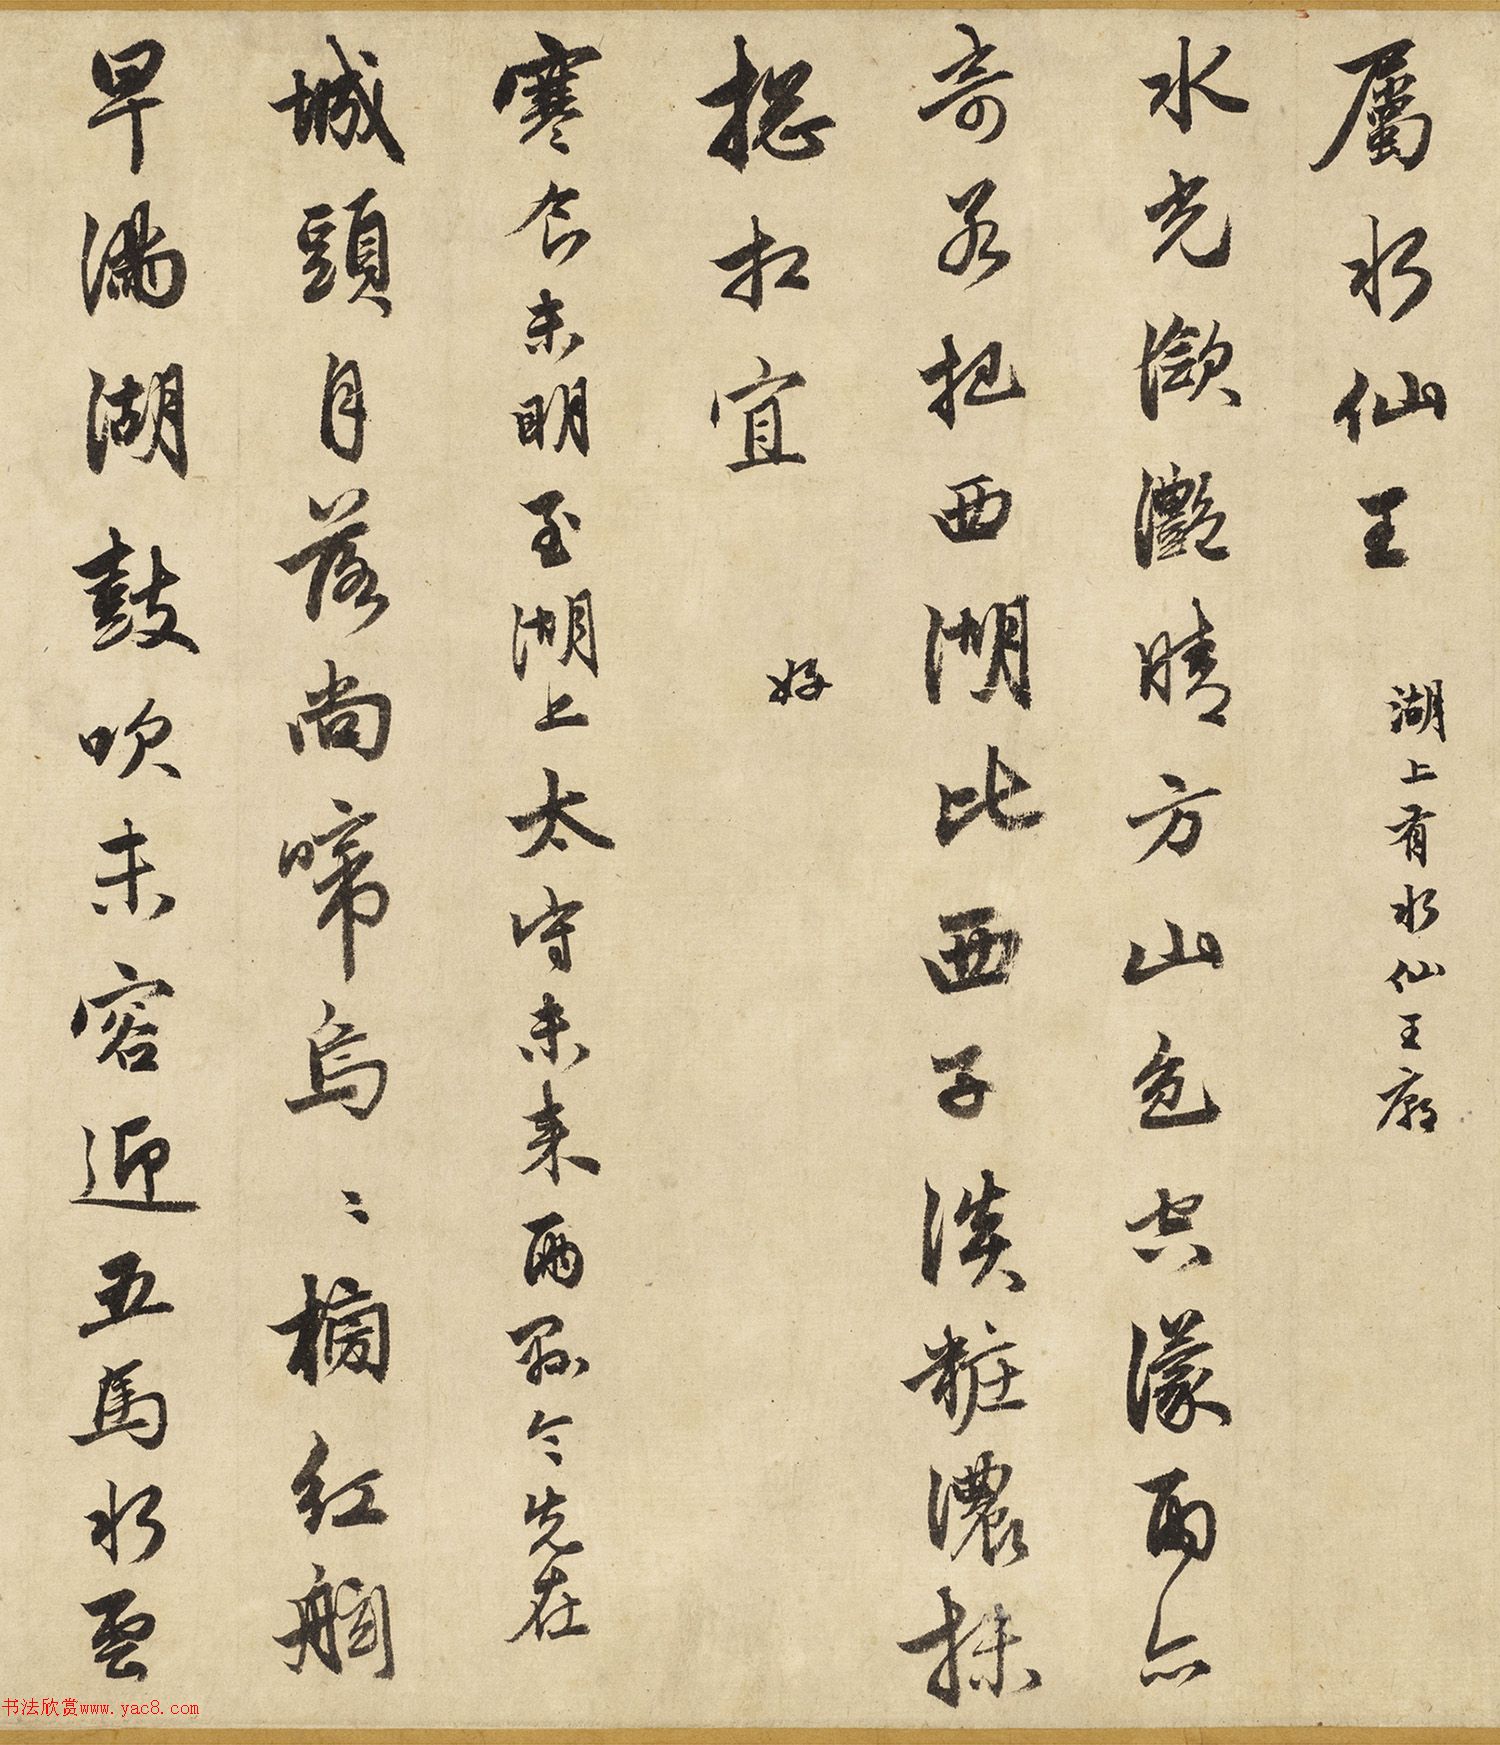 屬水仙王 湖上有水仙王廟
水光瀲灩晴方山色空濛雨亦
奇若把西湖比西子淡粧濃抹
摠相宜 好
寒食未明至湖上太守未来兩縣令先在
城頭月落尚啼烏〻紅
早滿湖鼓吹未容迎五馬水雲
书法欣赏www.yac8.com